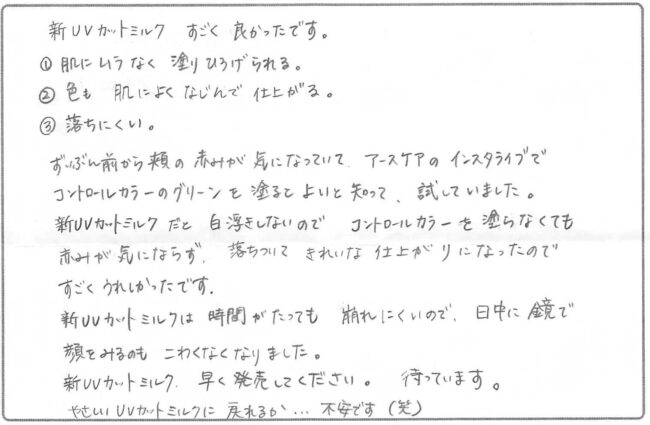 新UVカットミルク すごく 良かったです。
① 肌にムラなく 塗りひろげられる。
② 色も 肌によくなじんで 仕上がる。
③ 落ちにくい。
ずいぶん前から頬の赤みが 気になっていて、アースケアの インスタライブで
コントロールカラーのグリーンを塗るとよいと知って、試していました。
新UVカットミルクだと 白浮きしないので コントロールカラーを塗らなくても
赤みが気にならず、落ちついて きれいな 仕上がりになったので
すごくうれしかったです。
新UVカットミルクは 時間がたっても 崩れにくいので、日中に鏡で
顔をみるのも こわくなくなりました。
新UVカットミルク、早く発売してください。 待っています。
やさしいUVカットミルクに 戻れるか… 不安です(笑)